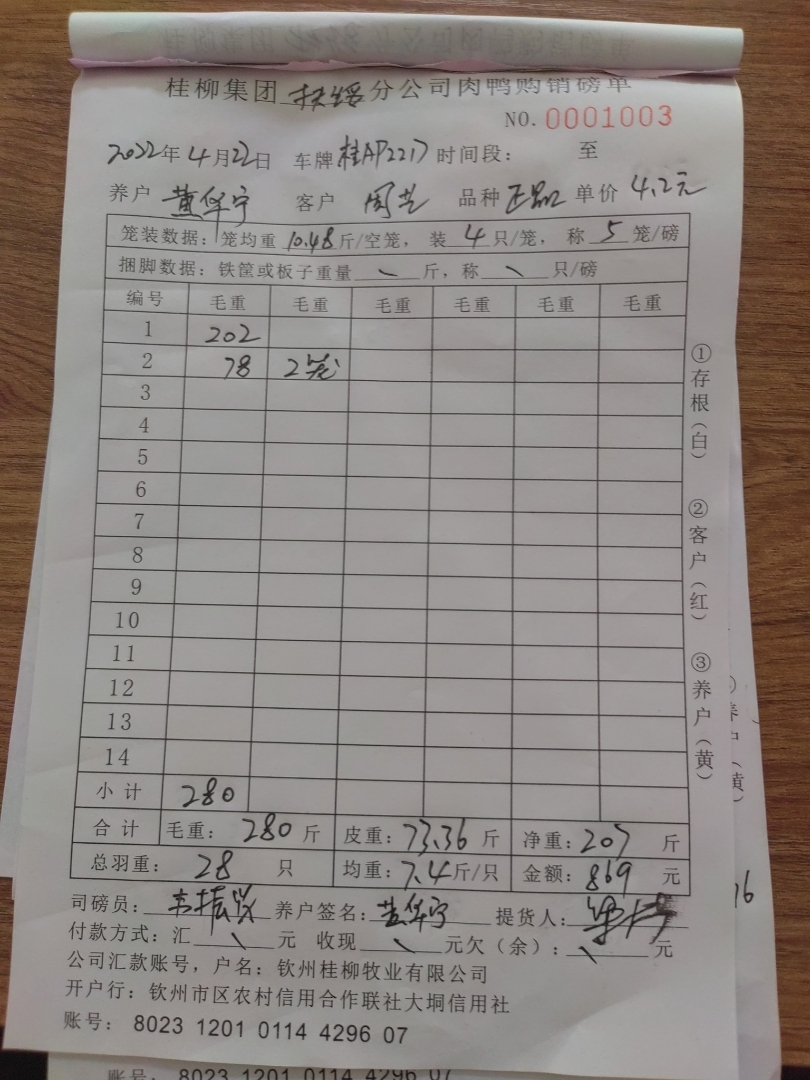 桂柳集团扶绥分公司肉鸭购销磅单
NO. 0001003
2022年4月22日 车牌桂AP2217时间段： 至
养户 黄华宁 客户 周芝 品种 正品 单价 4.2元
笼装数据：笼均重10.48斤/空笼，装4只/笼，称5笼/磅
捆脚数据：铁筐或板子重量\斤，称\只/磅
编号 毛重 毛重 毛重 毛重 毛重 毛重
1 202
2 78 2笼
3
4
5
6
7
8
9
10
11
12
13
14
小计 280
合计 毛重：280斤 皮重：73.36斤 净重：207斤
总羽重：28只 均重：7.4斤/只 金额：869元
司磅员：韦振兴 养户签名：黄华宁 提货人：
付款方式：汇\元 收现\元欠（余）：\元
公司汇款账号，户名：钦州桂柳牧业有限公司
开户行：钦州市区农村信用合作联社大垌信用社
账号：8023 1201 0114 4296 07
①存根（白）
②客户（红）
③养户（黄）
养户（黄）
16
账号：8023 1201 0114 4296 07